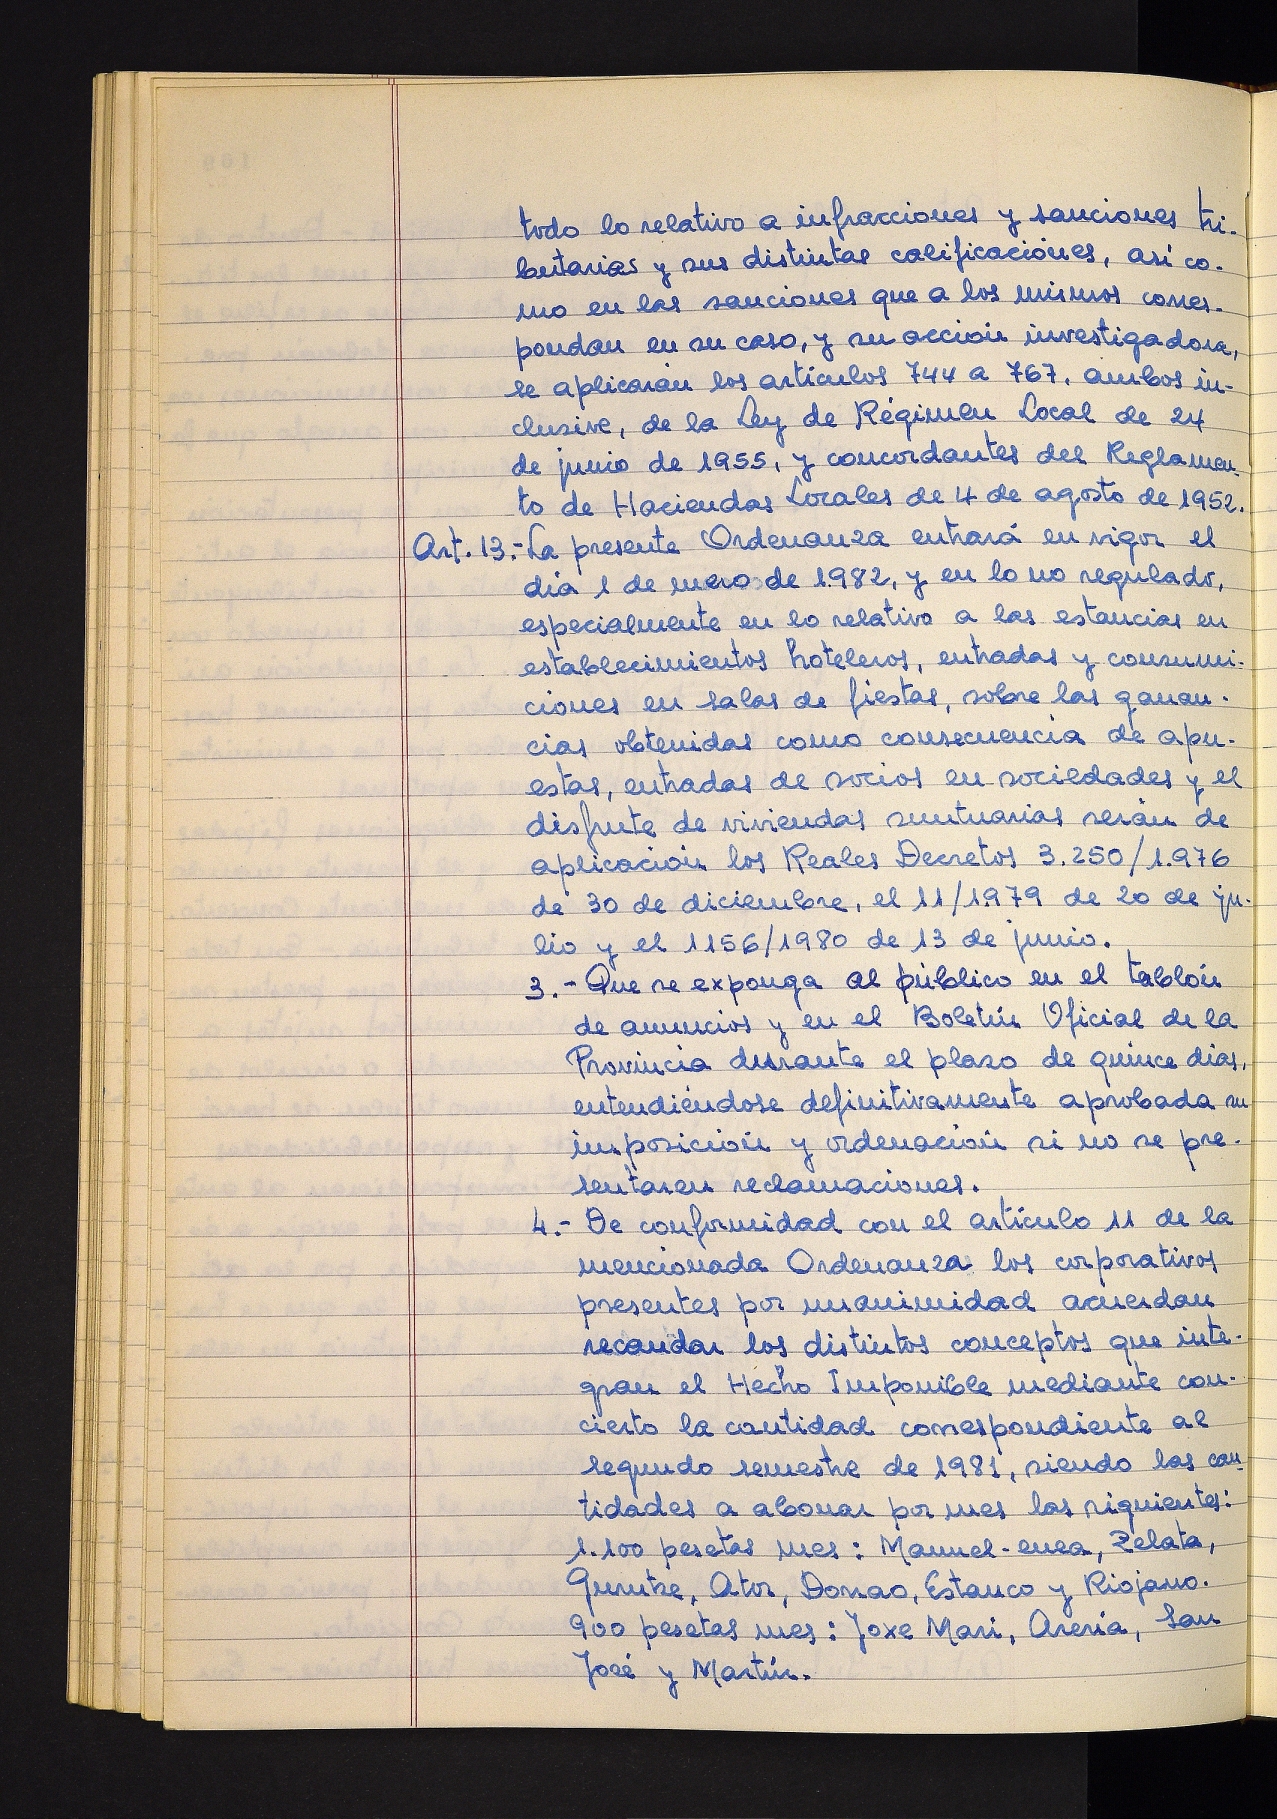 todo lo relativo a infracciones y sanciones tri-
butarias y sus distintas calificaciónes, así co-
mo en las sanciones que a los mismos corres-
pondan en su caso, y su acción investigadora,
se aplicarán los artículos 744 a 767, ambos in-
clusive, de la Ley de Régimen Local de 24
de junio de 1955, y concordantes del Reglamen-
to de Haciendas Locales de 4 de agosto de 1952.
Art. 13.- La presente Ordenanza entrará en vigor el
día 1 de enero de 1.982, y en lo no regulado,
especialmente en lo relativo a las estancias en
establecimientos hoteleros, entradas y consumi-
ciones en salas de fiestas, sobre las ganan-
cias obtenidas como consecuencia de apu-
estas, entradas de socios en sociedades y el
disfrute de viviendas suntuarias serán de
aplicación los Reales Decretos 3.250/1.976
de 30 de diciembre, el 11/1979 de 20 de ju-
lio y el 1156/1980 de 13 de junio.
3.- Que se exponga al público en el tablón
de anuncios y en el Boletín Oficial de la
Provincia durante el plazo de quince días,
entendiéndose definitivamente aprobada su
imposición y ordenación si no se pre-
sentaren reclamaciones.
4.- De conformidad con el artículo 11 de la
mencionada Ordenanza los corporativos
presentes por unanimidad acuerdan
recaudar los distintos conceptos que inte-
gran el Hecho Imponible mediante con-
cierto la cantidad correspondiente al
segundo semestre de 1981, siendo las can-
tidades a abonar por mes las siguientes:
1.100 pesetas mes: Manuel-enea, Zelata,
Gurutze, Ator, Donao, Estanco y Riojano.
900 pesetas mes: Joxe Mari, Areria, San
José y Martín.